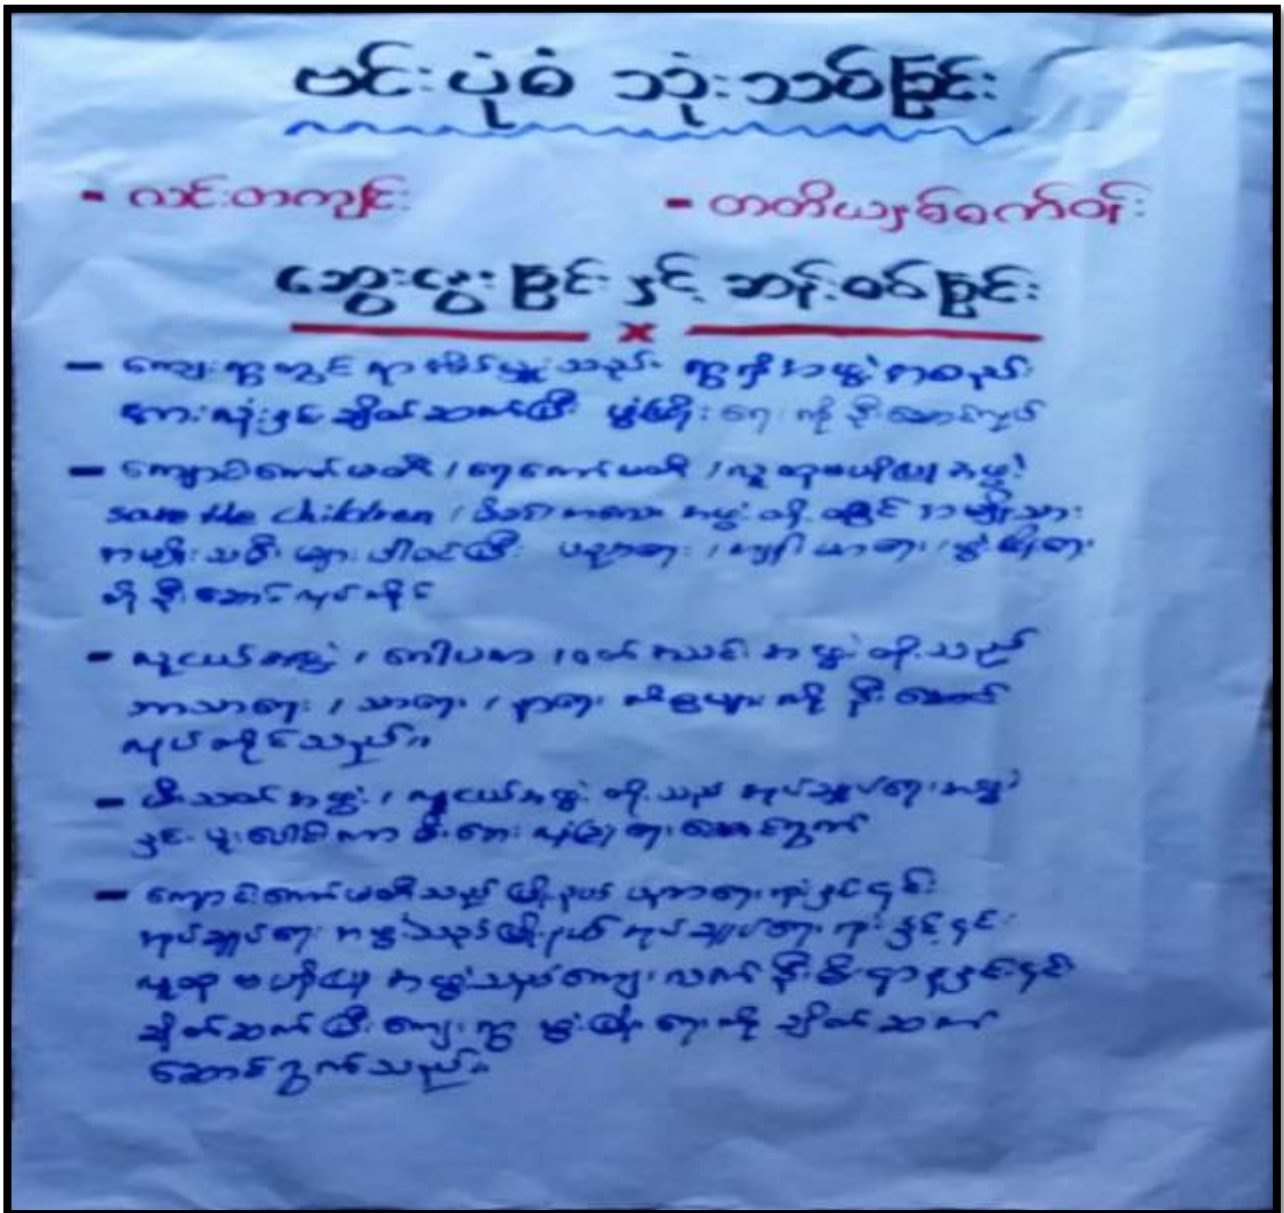 ဗင်းပုံစံ သုံးသပ်ခြင်း
- လင်းတကျင်း - တတိယနှစ်စက်ဝန်း
ဆွေးနွေးခြင်းနှင့် ဆန်းစစ်ခြင်း
x
- ကျေးရွာတွင် ရာအိမ်မှူးသည် ရွာရှိအဖွဲ့အစည်း
အားလုံးနှင့် ချိတ်ဆက်ပြီး ဖွံ့ဖြိုးရေး ကို ဦးဆောင်လုပ်
- ကျောင်းကော်မတီ / ရေကော်မတီ / လူထုဗဟိုပြုအဖွဲ့
save the children / မိခင်/ကလေး အဖွဲ့ တို့ တွင် အမျိုးသား
အမျိုးသမီး များ ပါဝင်ပြီး ပညာရေး / ကျန်းမာရေး / ဖွံ့ဖြိုးရေး
ကို ဦးဆောင်လုပ်ကိုင်
- လူငယ်အဖွဲ့ / ဂေါပက / ဝတ်အသင်း အဖွဲ့ တို့သည်
ဘာသာရေး / သာရေး / နာရေး ကိစ္စများ ကို ဦးဆောင်
လုပ်ကိုင်သည်။
- မီးသတ်အဖွဲ့ / လူငယ်အဖွဲ့ တို့သည် အုပ်ချုပ်ရေးအဖွဲ့
နှင့် ပူးပေါင်းကာ မီးဘေး လုံခြုံရေး ဆောင်ရွက်
- ကျောင်းကော်မတီသည် မြို့နယ် ပညာရေးရုံးနှင့်၎င်း
အုပ်ချုပ်ရေး အဖွဲ့သည် မြို့နယ် အုပ်ချုပ်ရေး ရုံးနှင့်၎င်း
လူထု ဗဟိုပြု အဖွဲ့သည် ကျေးလက် ဦးစီးဌာနနှင့်၎င်း
ချိတ်ဆက်ပြီး ကျေးရွာ ဖွံ့ဖြိုးရေး ကို ချိတ်ဆက်
ဆောင်ရွက်သည်။